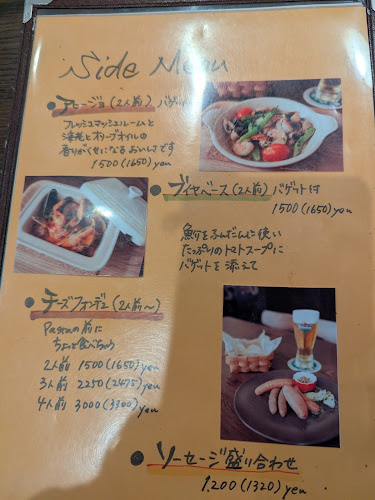 Side Menu
アヒージョ(2人前) バゲット
フレッシュマッシュルームと
海老とオリーブオイルの
香りがくせになるおいしさです
1500(1650)yen
ブイヤベース(2人前) バゲット付
1500(1650)yen
魚介をふんだんに使い
たっぷりのトマトスープに
バゲットを添えて
チーズフォンデュ(2人前〜)
の前に
ちょっと食べちゃう
2人前 1500(1650)yen
3人前 2250(2475)yen
4人前 3000(3300)yen
ソーセージ盛り合わせ
1,200(1320)yen